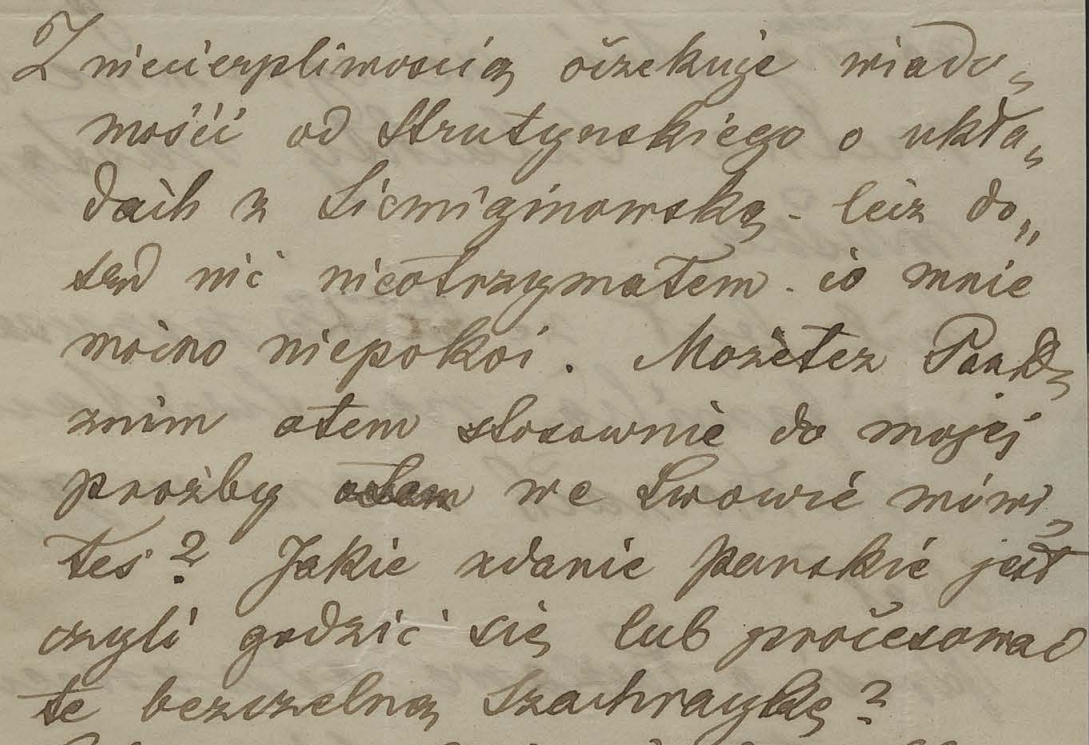 Z niecierpliwoscią oczekuje wiado„
mości od Strutynskiego o ukła„
dach z Siemiginowską - lecz do„
sąd nic nieotrzymałem - co mnie
mocno niepokoi. Możeteż Pan
znim otem stosownie do mojej
prożby we Lwowie mówi„
łes? Jakie zdanie panskie jest
czyli godzić się lub procesować
te bezczelną Szachrayką?